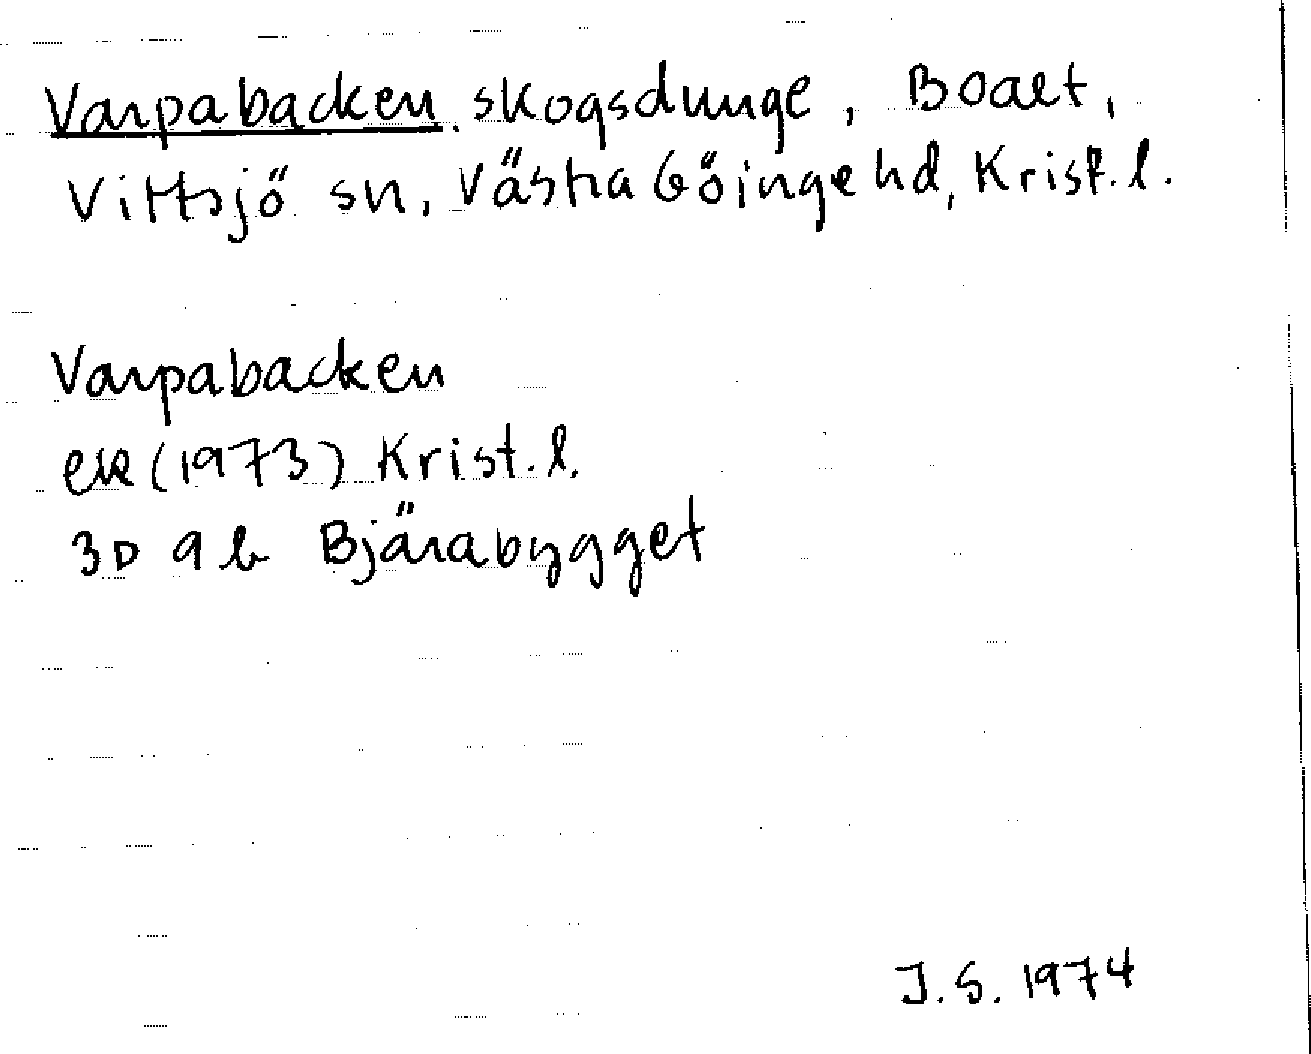 Varpabacken, skogsdunge, Boalt,
Vittsjö sn, Västra Göinge hd, Krist.l.
Varpabacken
ek (1973) Krist.l.
3D 9b Bjärabygget
J.S. 1974